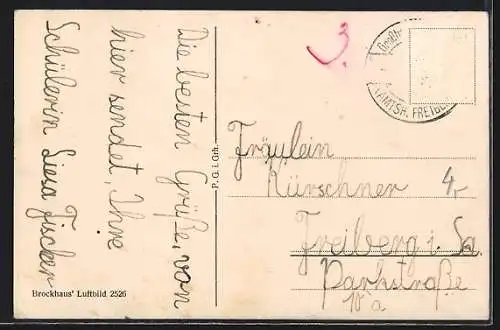 Die besten Grüße, von
hier sendet, Ihre
Schülerin Liesa Fischer
Brockhaus' Luftbild 2526
P. G. i. Gth.
3.
(AMTSH. FREIBE
Fräulein
Kürschner
Freiberg i. Sa.
Parkstraße